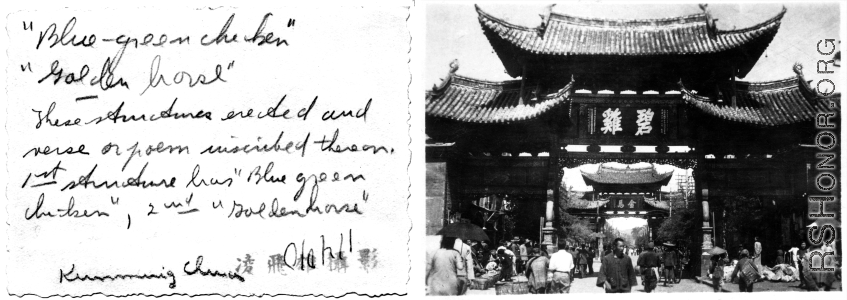 "Blue-green chicken"
"Golden horse"
These structures erected and
verse or poem inscribed thereon.
1st structure has "Blue green
chicken", 2nd "Golden horse"
Kunming China
凌 飛 攝影
碧雞
RSHONOR.ORG